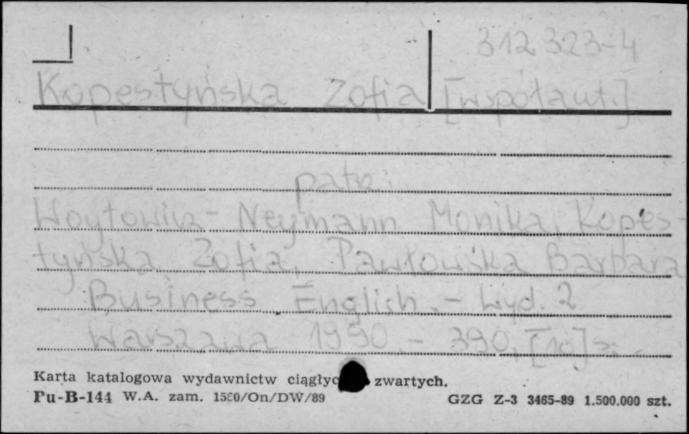 312323-4
Kopestyńska Zofia [współaut.]
patrz:
Woytowicz-Neymann Monika, Kopes-
tyńska Zofia, Pawłowska Barbara
Business English. - Wyd. 2
Warszawa 1990. - 390, [10] s.
Karta katalogowa wydawnictw zwartych.
Pu-B-144 W.A. zam. 1580/On/DW/89 GZG Z-3 3465-89 1.500.000 szt.